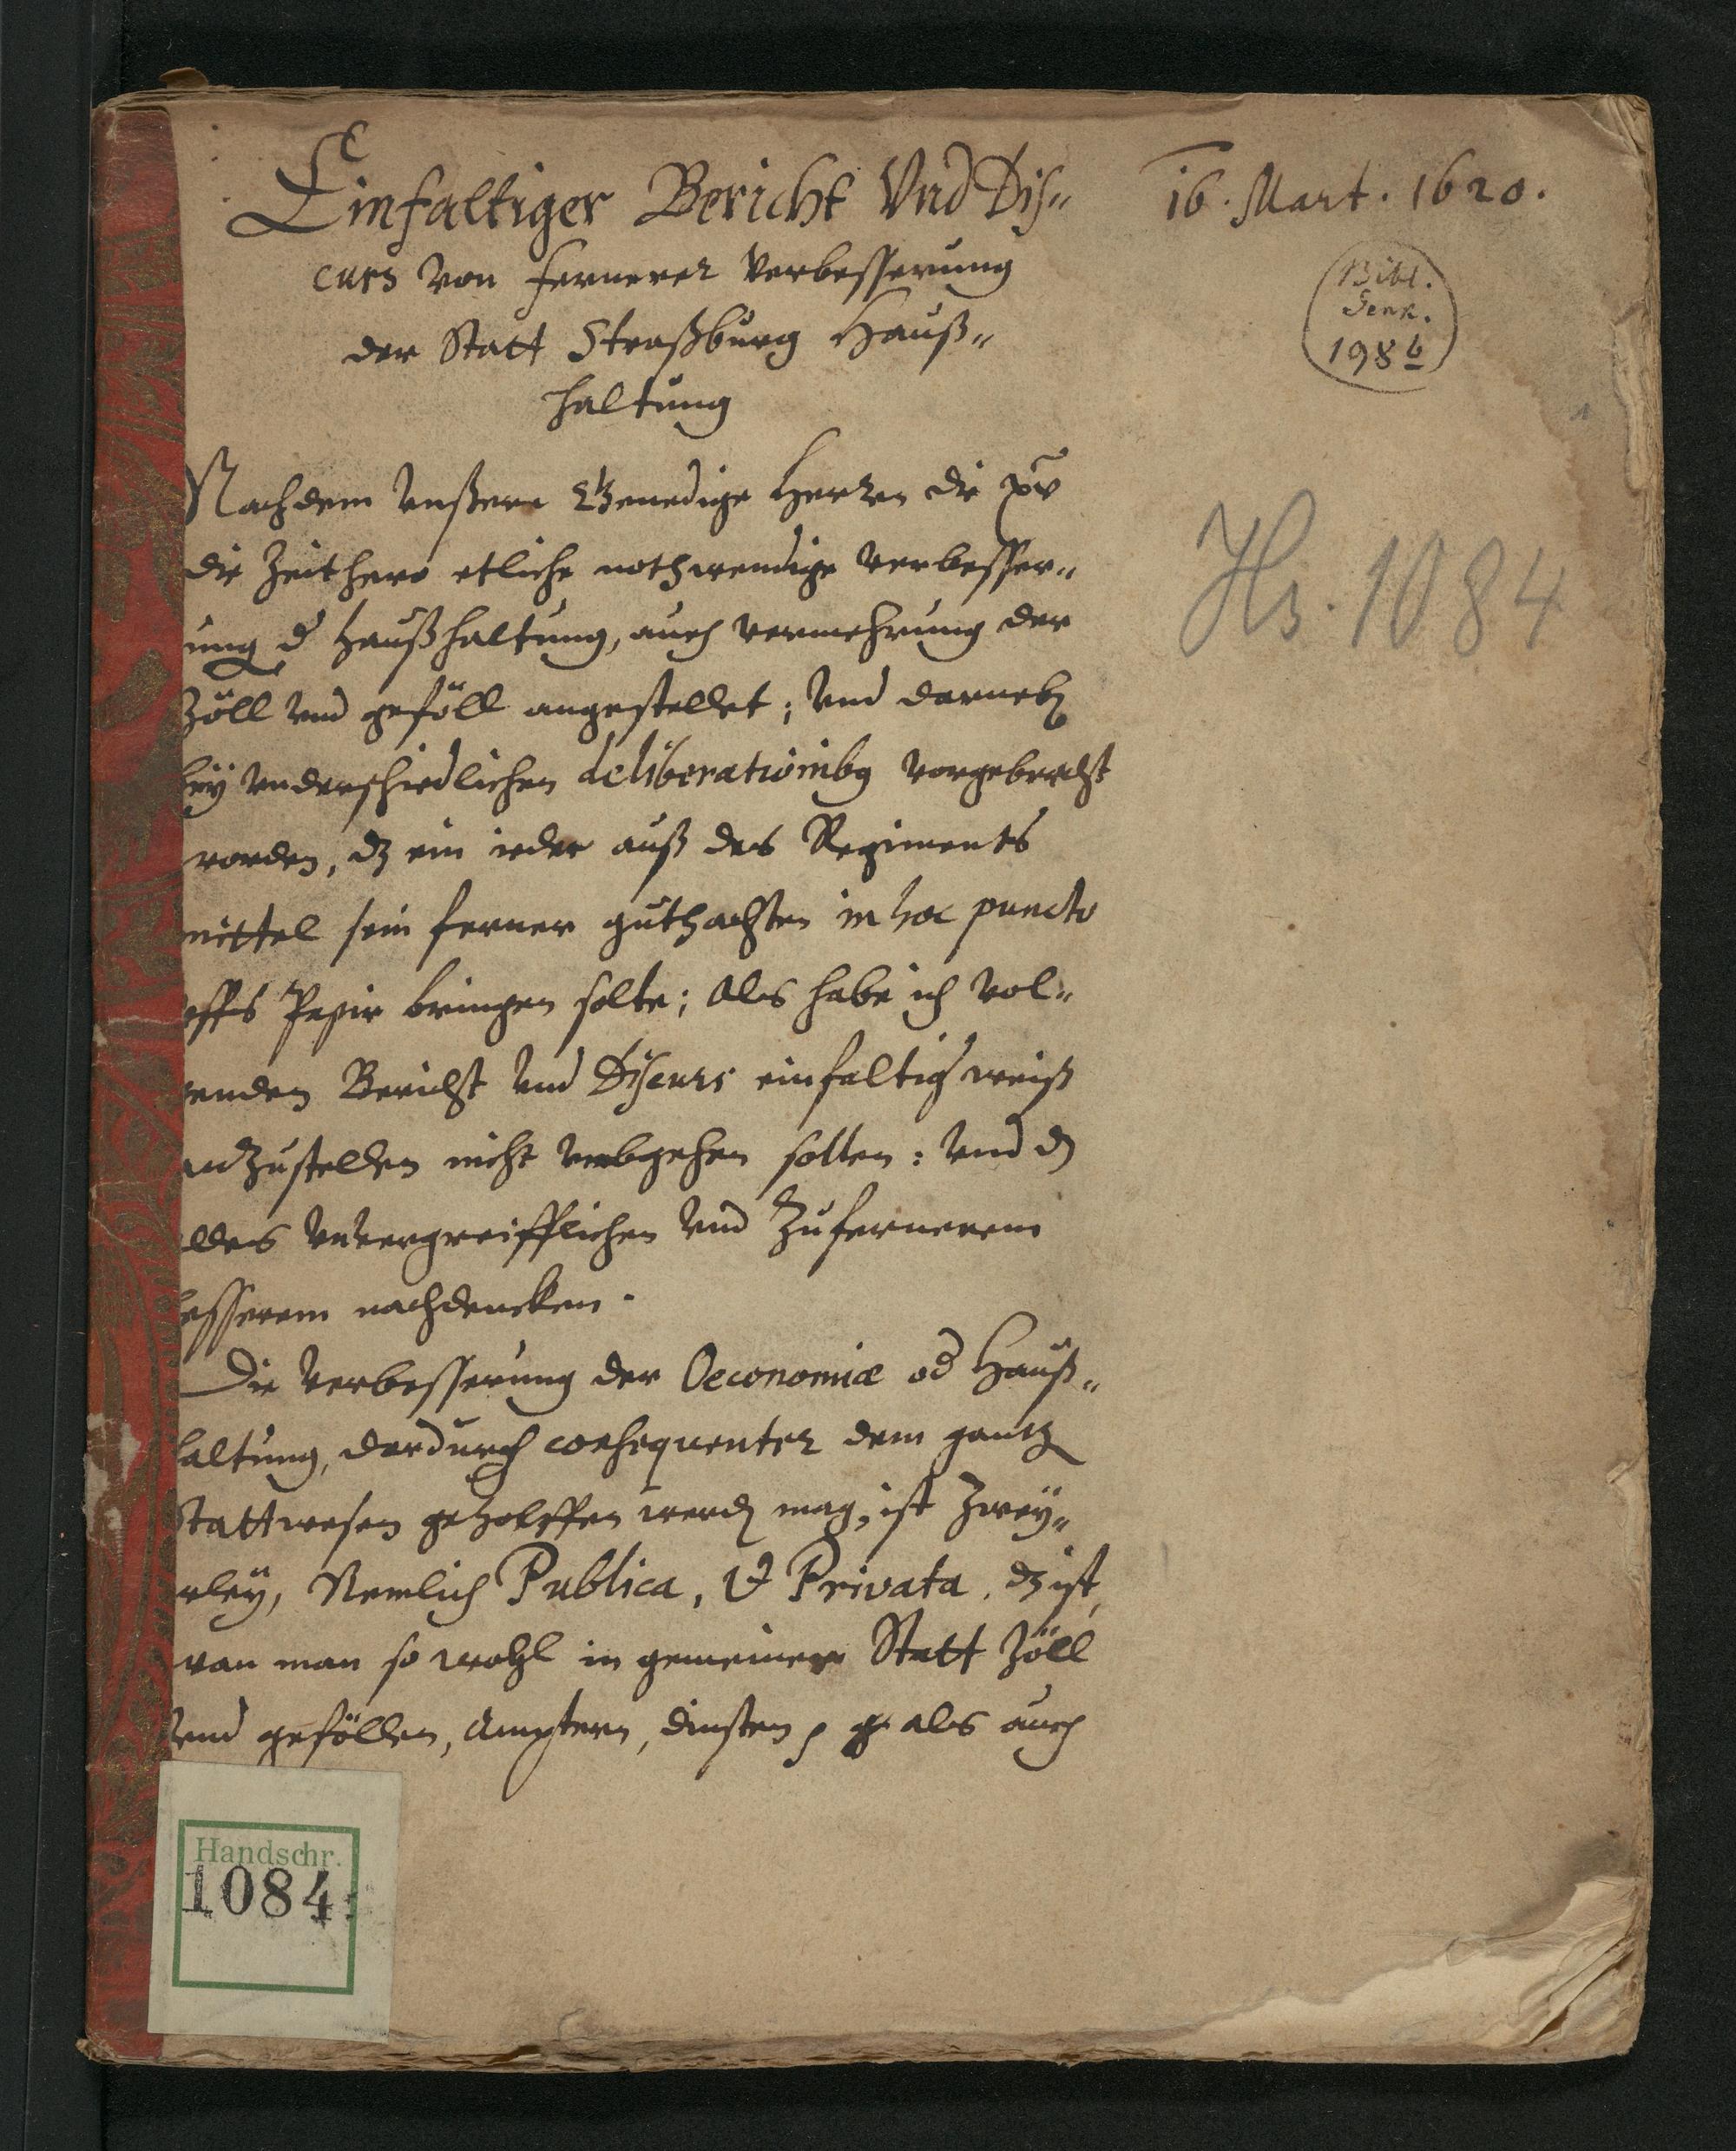 Einfaltiger Bericht Vnd Dis„
curs Von fernerer Verbesserung
der Statt Straßburg Hauß„
haltung
16. Mart. 1620.
Bibl.
Senk.
1986
Hs. 1084
Nachdem Vnßere Gnedige Herren die xv
die Zeithero etliche nothwendige Verbesser„
ung d Haußhaltung, auch Vermehrung der
Zöll Vnd geföll angestellet; Vnd darneb
bey Vnderschiedlichen deliberationibg Vorgebracht
worden, dz ein ieder auß des Regiments
mittel sein ferner guthachten in hoc puncto
effs Papir bringen solte; Als habe ich Vol„
genden Bericht Vnd Discurs einfaltig weiß
anzustellen nicht sollen: Vnd d
lles Vnvergreifflichen Vnd Zu fernerem
besserem nachdencken.
Die Verbesserung der Oeconomiæ od Hauß„
haltung, dardurch consequenter dem gantz
Stattwesen geholffen werd mag, ist Zwey„
erley, Nemlich Publica, & Privata. dz ist,
wan man so wohl in gemeiner Statt Zöll
Vnd geföllen, Amptern, dinsten als auch
Handschr.
1084